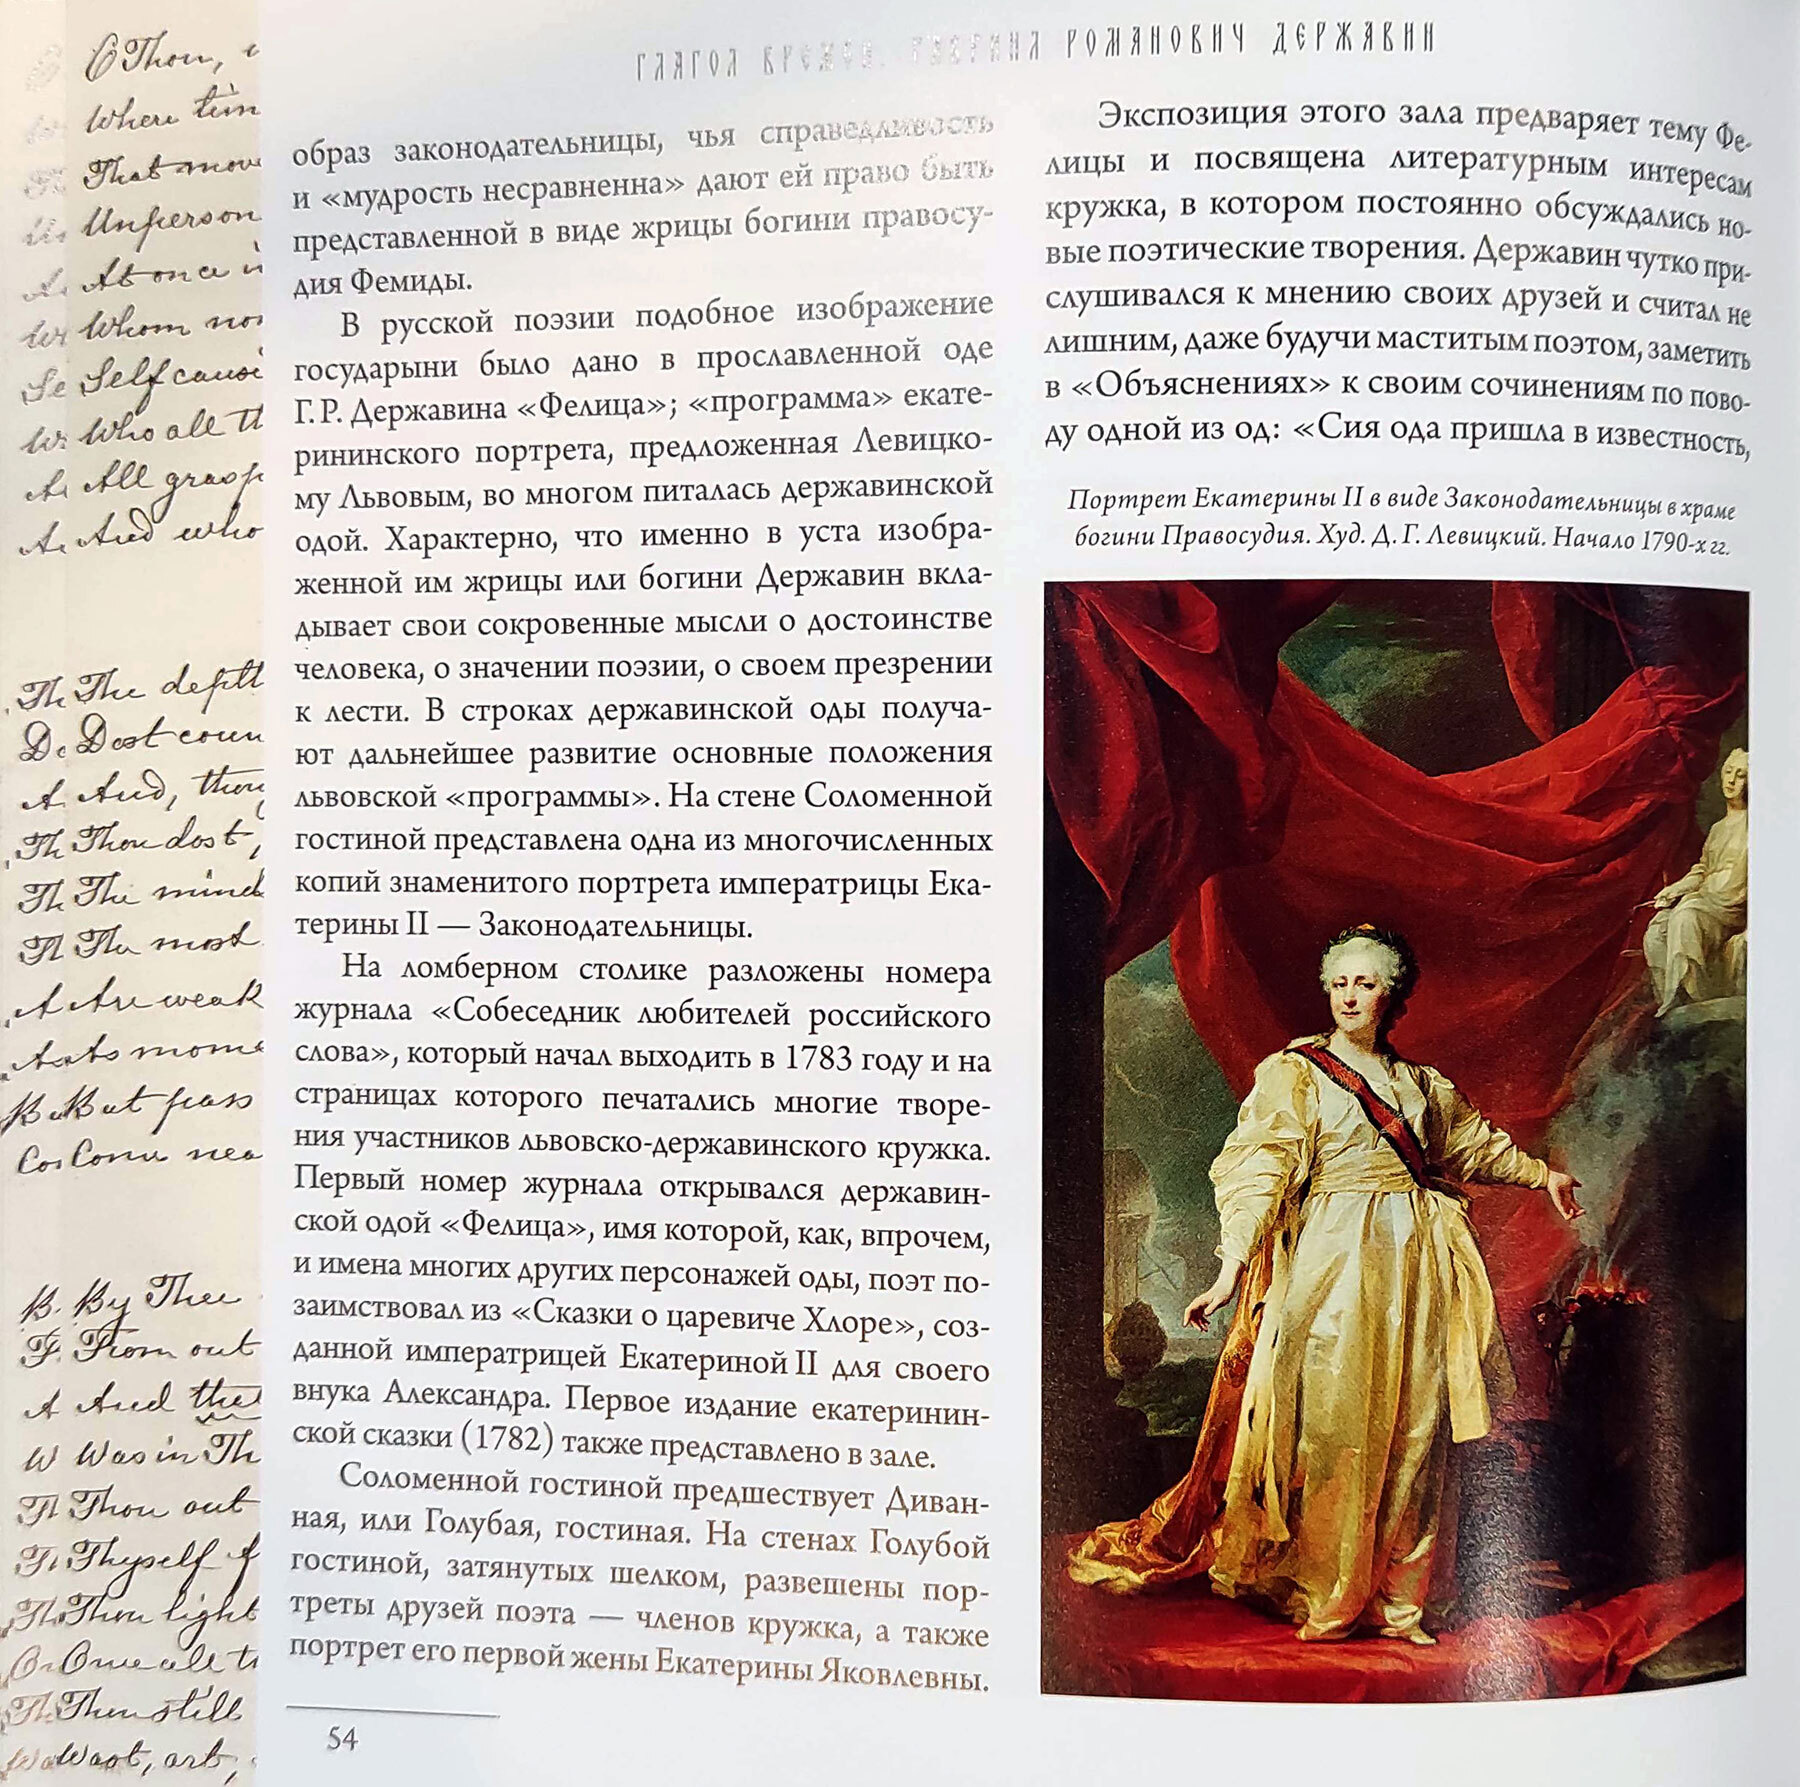 O Thou,
Where tim
That move
Unperson
At once i
Whom no
Self causi
Who all th
All grasp
And who
The depth
Dost coun
And, thou
Thou dost,
The mind
The most
Are weak
As mome
But pass
Come nea
By Thee
From out
And the
Was in Th
Thou out
Thyself
Thou light
One all t
Thou still
Wast, art,
ГЛАГОЛ ВРЕМЕН. ГАВРИИЛ РОМАНОВИЧ ДЕРЖАВИН
образ законодательницы, чья справедливость
и «мудрость несравненна» дают ей право быть
представленной в виде жрицы богини правосу-
дия Фемиды.
В русской поэзии подобное изображение
государыни было дано в прославленной оде
Г.Р. Державина «Фелица»; «программа» екате-
рининского портрета, предложенная Левицко-
му Львовым, во многом питалась державинской
одой. Характерно, что именно в уста изобра-
женной им жрицы или богини Державин вкла-
дывает свои сокровенные мысли о достоинстве
человека, о значении поэзии, о своем презрении
к лести. В строках державинской оды получа-
ют дальнейшее развитие основные положения
львовской «программы». На стене Соломенной
гостиной представлена одна из многочисленных
копий знаменитого портрета императрицы Ека-
терины II — Законодательницы.
На ломберном столике разложены номера
журнала «Собеседник любителей российского
слова», который начал выходить в 1783 году и на
страницах которого печатались многие творе-
ния участников львовско-державинского кружка.
Первый номер журнала открывался державин-
ской одой «Фелица», имя которой, как, впрочем,
и имена многих других персонажей оды, поэт по-
заимствовал из «Сказки о царевиче Хлоре», соз-
данной императрицей Екатериной II для своего
внука Александра. Первое издание екатеринин-
ской сказки (1782) также представлено в зале.
Соломенной гостиной предшествует Диван-
ная, или Голубая, гостиная. На стенах Голубой
гостиной, затянутых шелком, развешены пор-
треты друзей поэта — членов кружка, а также
портрет его первой жены Екатерины Яковлевны.
54
Экспозиция этого зала предваряет тему Фе-
лицы и посвящена литературным интересам
кружка, в котором постоянно обсуждались но-
вые поэтические творения. Державин чутко при-
слушивался к мнению своих друзей и считал не
лишним, даже будучи маститым поэтом, заметить
в «Объяснениях» к своим сочинениям по пово-
ду одной из од: «Сия ода пришла в известность,
Портрет Екатерины II в виде Законодательницы в храме
богини Правосудия. Худ. Д. Г. Левицкий. Начало 1790-х гг.